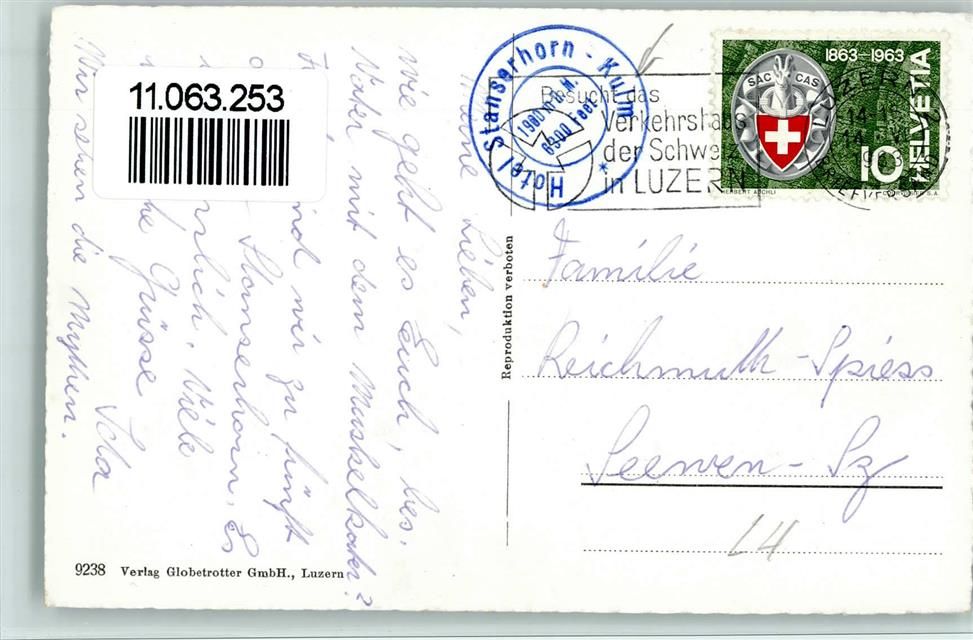 Meine Lieben,
Wie geht es Euch, bes.
Vater mit dem Muskelkater?
sind wir zu fünft
Stanserhorn. Es
Viele
Grüsse Ida
Wir sehen die Mythen.
11.063.253
9238 Verlag Globetrotter GmbH., Luzern
Reproduktion verboten
Hotel Stanserhorn - Kulm *
1900 m ü. M.
6300 Feet
Besucht das
Verkehrshaus
der Schweiz
in LUZERN
LUZERN
1863-1963
SAC CAS
HELVETIA
10
HERBERT AUCHLI
Familie
Reichmuth-Spiess
Seewen-Sz
14